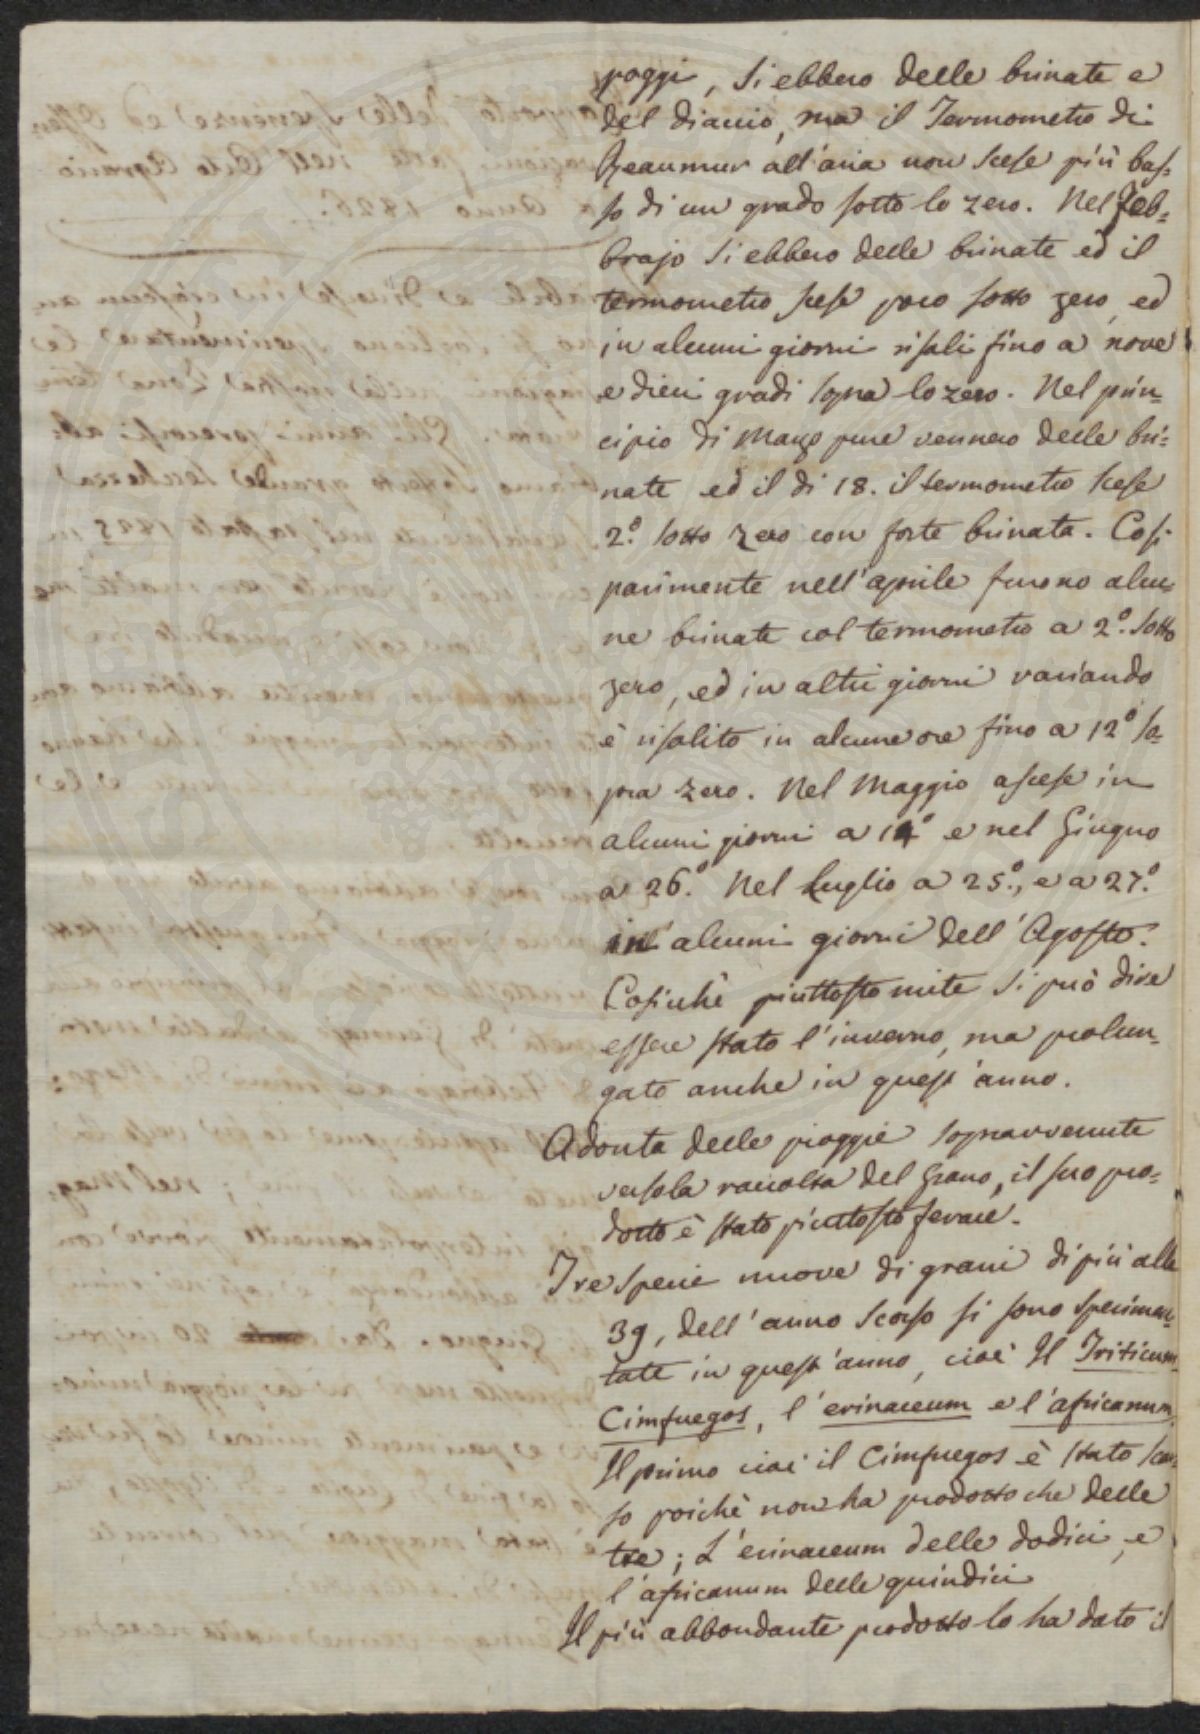 poggi, si ebbero delle brinate e
del diaccio, ma il Termometro di
Reaumur all'aria non scese più bas-
so di un grado sotto lo zero. Nel Feb-
brajo si ebbero delle brinate ed il
termometro scese poco sotto zero, ed
in alcuni giorni risalì fino a nove
e dieci gradi sopra lo zero. Nel prin-
cipio di Marzo pure vennero delle bri-
nate ed il dì 18. il termometro scese
2.° sotto zero con forte brinata. Così
parimente nell'aprile furono alcu-
ne brinate col termometro a 2.° sotto
zero, ed in altri giorni variando
è risalito in alcune ore fino a 12° so-
pra zero. Nel Maggio ascese in
alcuni giorni a 14° e nel Giugno
a 26.° Nel Luglio a 25.°, e a 27.°
in alcuni giorni dell'Agosto.
Cosicchè piuttosto mite si può dire
essere stato l'inverno, ma prolun-
gato anche in quest'anno.
Adonta delle pioggie sopravvenute
verso la raccolta del Grano, il suo pro-
dotto è stato piuttosto ferace.
Tre specie nuove di grani di più alle
39, dell'anno scorso si sono sperimen-
tate in quest'anno, cioè Il Triticum
Cimfuegos, l'erinaceum e l'africanum.
Il primo cioè il Cimfuegos è stato scar-
so poichè non ha prodotto che delle
tre; L'erinaceum delle dodici, e
l'africanum delle quindici
Il più abbondante prodotto lo ha dato il